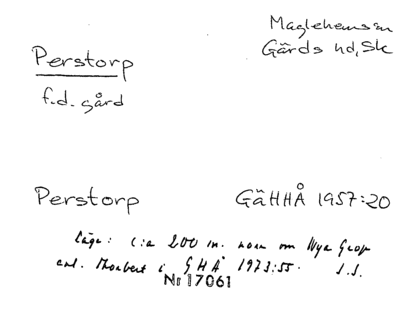 Maglehems sn
Gärds hd, Sk
Perstorp
f.d. gård
Perstorp GäHHÅ 1957:20
Läge: c:a 200 m. norr om Nya Grop
enl. i GHÅ 1973:55. S.S.
Nr 17061